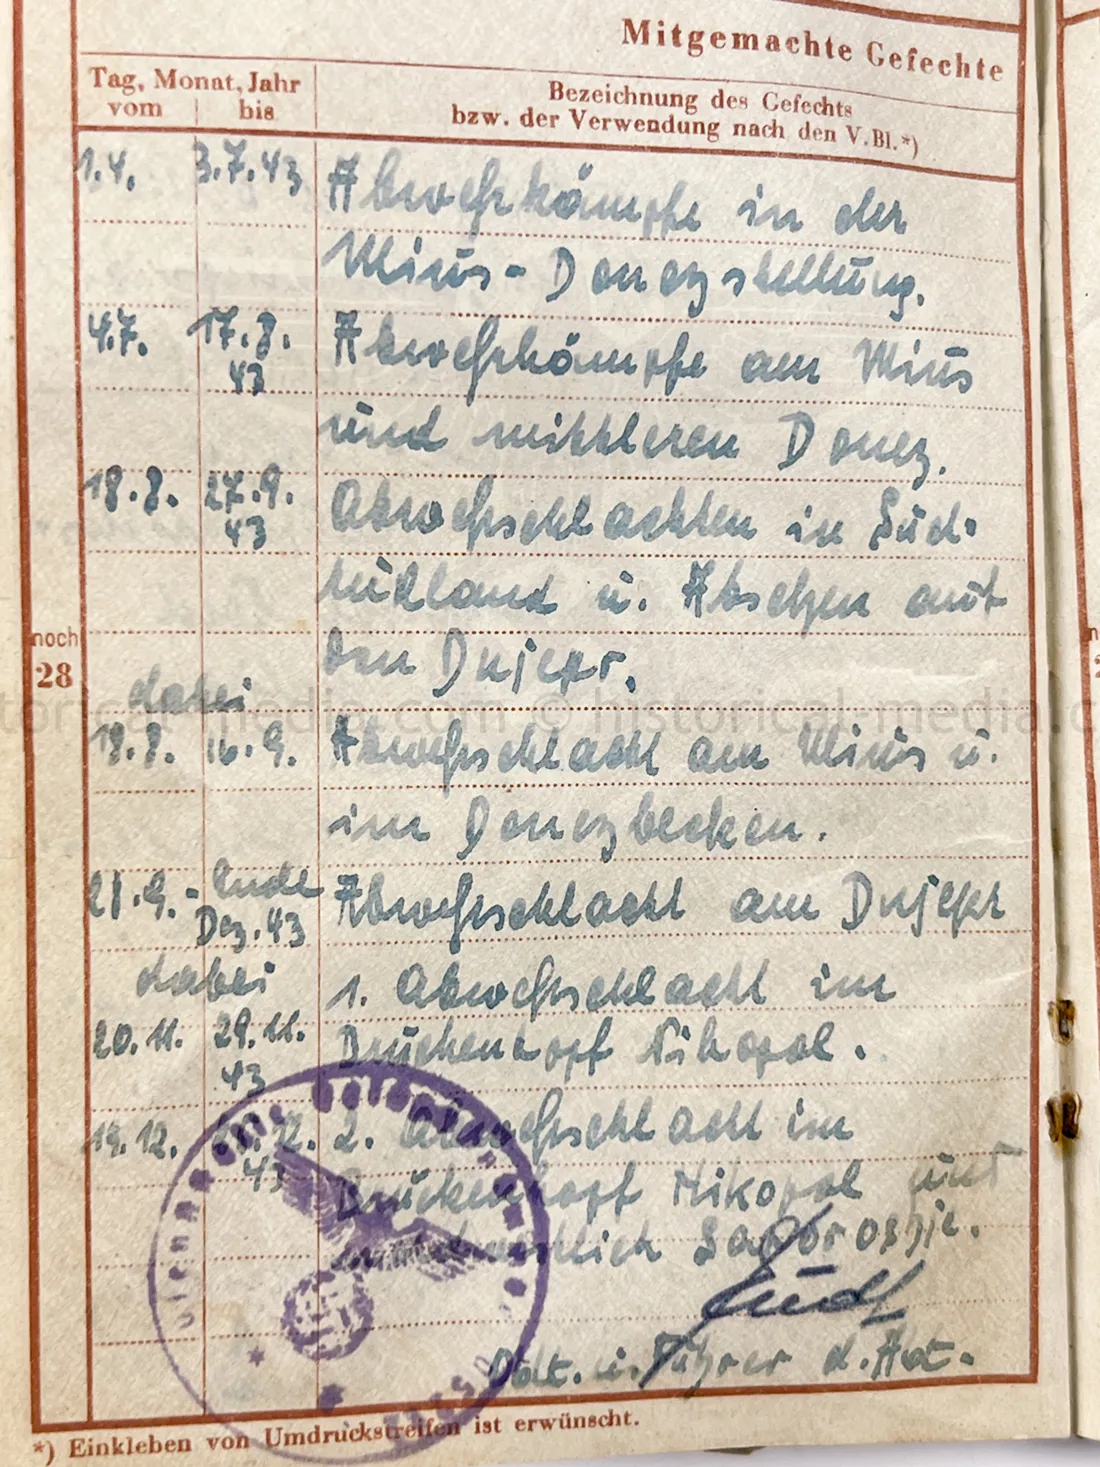 Mitgemachte Gefechte
Tag, Monat, Jahr
vom bis
Bezeichnung des Gefechts
bzw. der Verwendung nach den V.Bl.*)
1.4. 3.7.43 Abwehrkämpfe in der
Mius-Donezstellung.
4.7. 17.8. Abwehrkämpfe am Mius
43 und mittleren Donez.
18.8. 27.9. Abwehrschlachten in Süd-
43
rußland u. Absetzen auf
den Dnjepr.
noch
28
dabei
historical-media.com © historical-media.c
18.8. 16.9. Abwehrschlacht am Mius u.
im Donezbecken.
21.9. - Ende Abwehrschlacht am Dnjepr
Dez. 43
dabei 1. Abwehrschlacht im
20.11. 29.11. Brückenkopf Nikopol.
43
19.12. 12. 2. Abwehrschlacht im
43 Brückenkopf Nikopol und
Saporoshje.
u. Führer d. Abt.
*) Einkleben von Umdruckstreifen ist erwünscht.